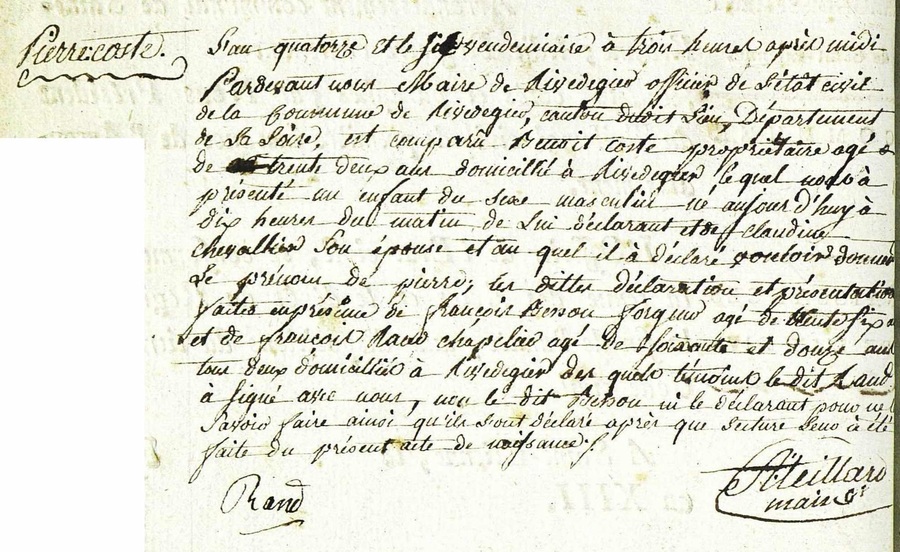 Pierre coste.
L'an quatorze et le vendemiaire à trois heures après midi
Pardevant nous Maire de Rivedegier officier de L'état civil
de la Commune de Rivedegier, canton dudit Lieu, Département
de La Loire, est comparu Benoit coste propriétaire agé
de trente deux ans domicillié à Rivedegier le quel nous à
présenté un enfant du sexe masculin né aujour d'huy à
dix heures du matin de Lui déclarant et de claudine
chevallier Son épouse et au quel il à déclaré vouloir donner
Le prénom de pierre, les dittes déclaration et présentation
faites en présence de françois Besson forgeur agé de trente six
et de françois Rand chapelier agé de Soixante et douze ans
tous deux domicilliés à Rivedegier des quels témoins le dit Rand
à Signé avec nous, non le dit Besson ni le déclarant pour ne
Savoir faire ainsi qu'ils ont déclaré après que Lecture Leur à été
faite du présent acte de naissance.
Rand
maire